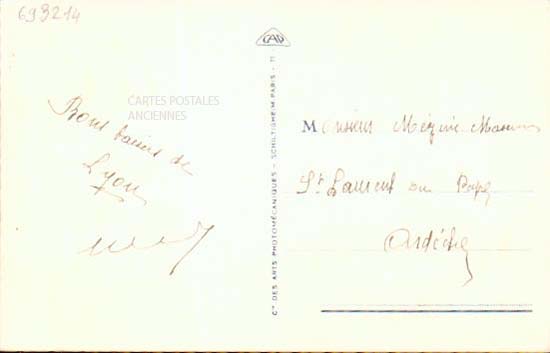 693214
CAP
CARTES POSTALES
ANCIENNES
Bons baisers de
Lyon
Cie DES ARTS PHOTOMÉCANIQUES - SCHILTIGHEIM-PARIS - 11
Monsieur
St Laurent du Pape
Ardèche